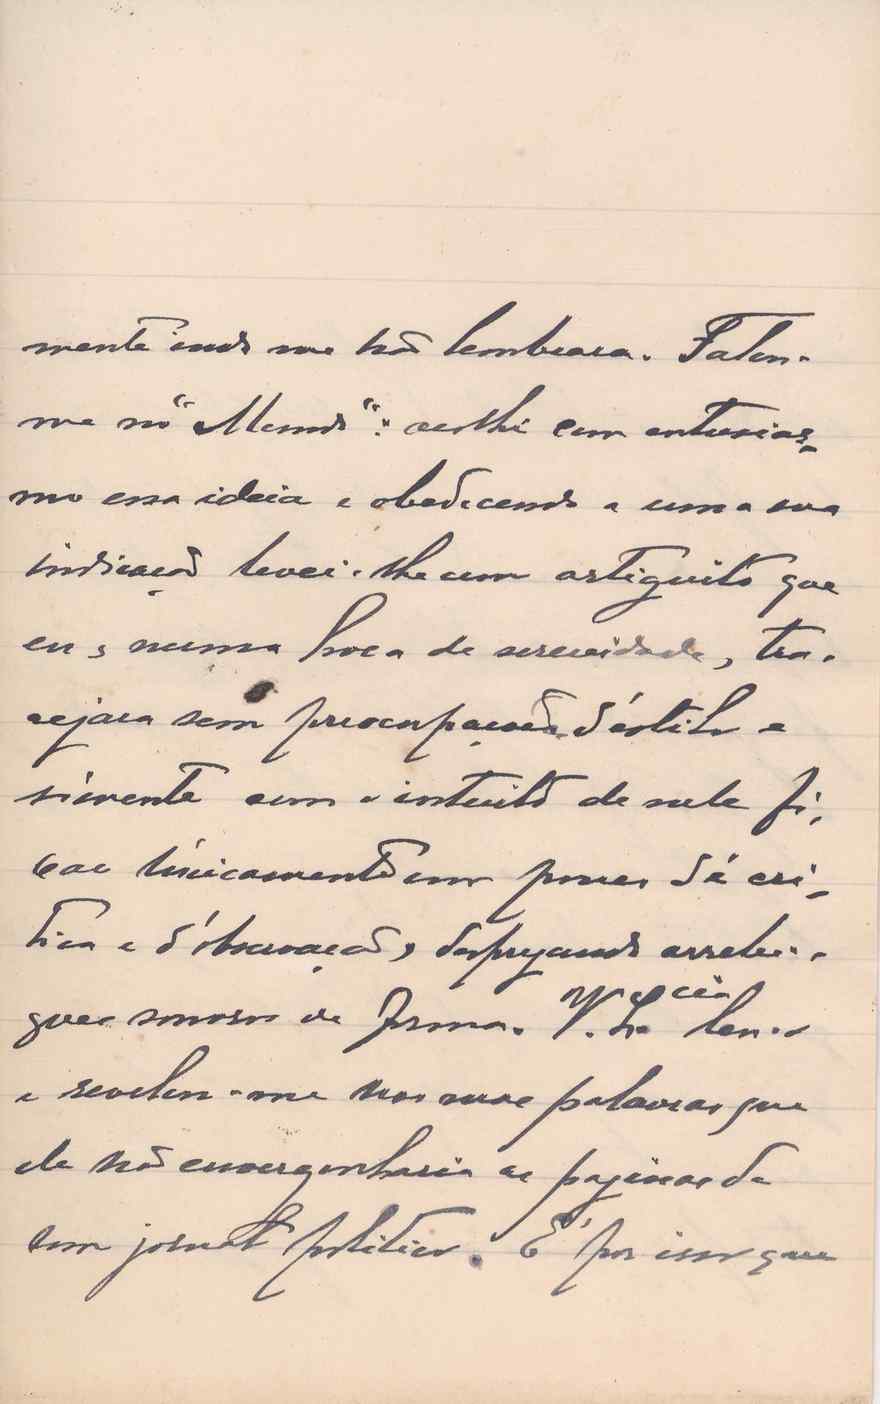 mente inda me não lembrara. Falou-
me no "Mundo": acolhi com entusias-
mo essa ideia e obedecendo a uma sua
indicação levei-lhe um artiguito que
eu, numa hora de serenidade, tra-
cejara sem preocupações d'estilo e
sómente com o intuito de nele fi-
car únicamente um pouco de cri-
tica e d'observação, desprezando arrebi-
ques sonoros de forma. V. Ex.cia leu-o
e revelou-me nas suas palavras que
ele não envergonharia as paginas de
um jornal politico. É por isso que